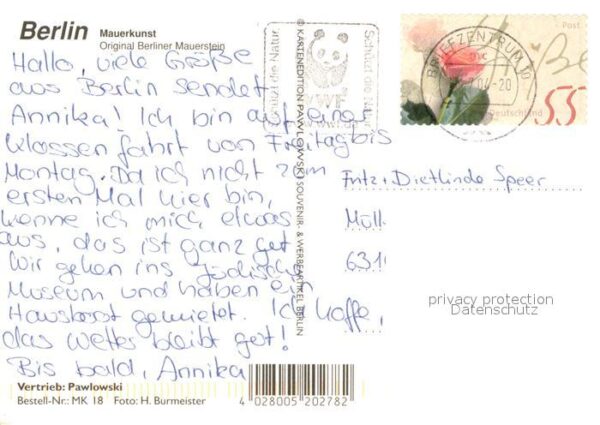 Berlin Mauerkunst
Original Berliner Mauerstein
Hallo, viele Grüße
aus Berlin sendet
Annika! Ich bin auf einer
Klassenfahrt von Freitag bis
Montag. Da ich nicht zum
ersten Mal hier bin,
kenne ich mich etwas
aus, das ist ganz gut
Wir gehen ins Jüdische
Museum und haben ein
Hausboot gemietet. Ich hoffe,
das Wetter bleibt gut!
Bis bald, Annika
Vertrieb: Pawlowski
Bestell-Nr.: MK 18 Foto: H. Burmeister
4 028005 202782
© KARTENEDITION PAWLOWSKI SOUVENIR- & WERBEARTIKEL BERLIN
Schützt die Natur
WWF
Post
Grüße
Deutschland
55
BRIEFZENTRUM 10
Fritz + Dietlinde Speer
Möll
631
privacy protection
Datenschutz